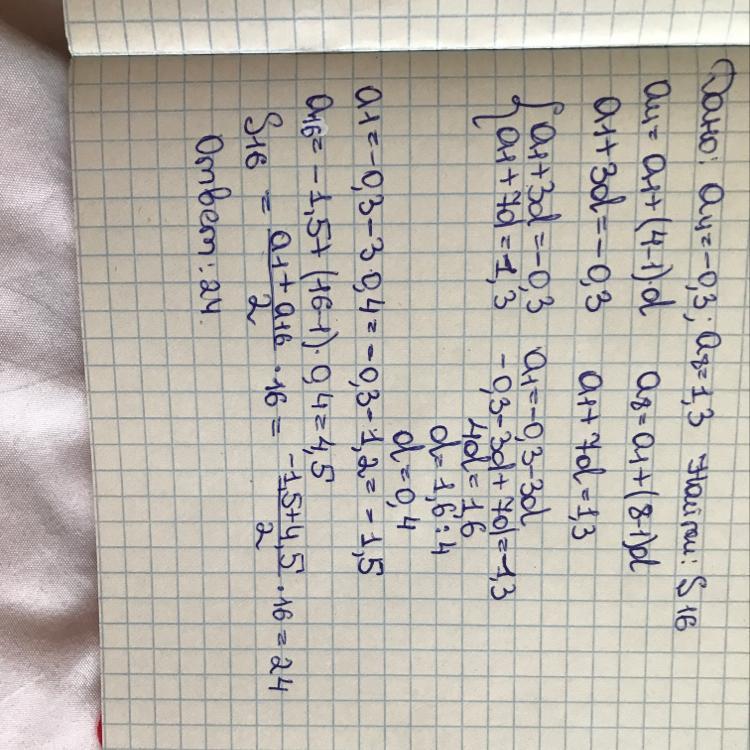 Дано: a4=-0,3; a8=1,3 Найти: S16
a4=a1+(4-1)·d a8=a1+(8-1)d
a1+3d=-0,3 a1+7d=1,3
{a1+3d=-0,3 a1=-0,3-3d
{a1+7d=1,3 -0,3-3d+7d=1,3
4d=1,6
d=1,6:4
d=0,4
a1=-0,3-3·0,4=-0,3-1,2=-1,5
a16=-1,5+(16-1)·0,4=4,5
S16 = a1+a16/2 ·16= -1,5+4,5/2 ·16=24
Ответ: 24.